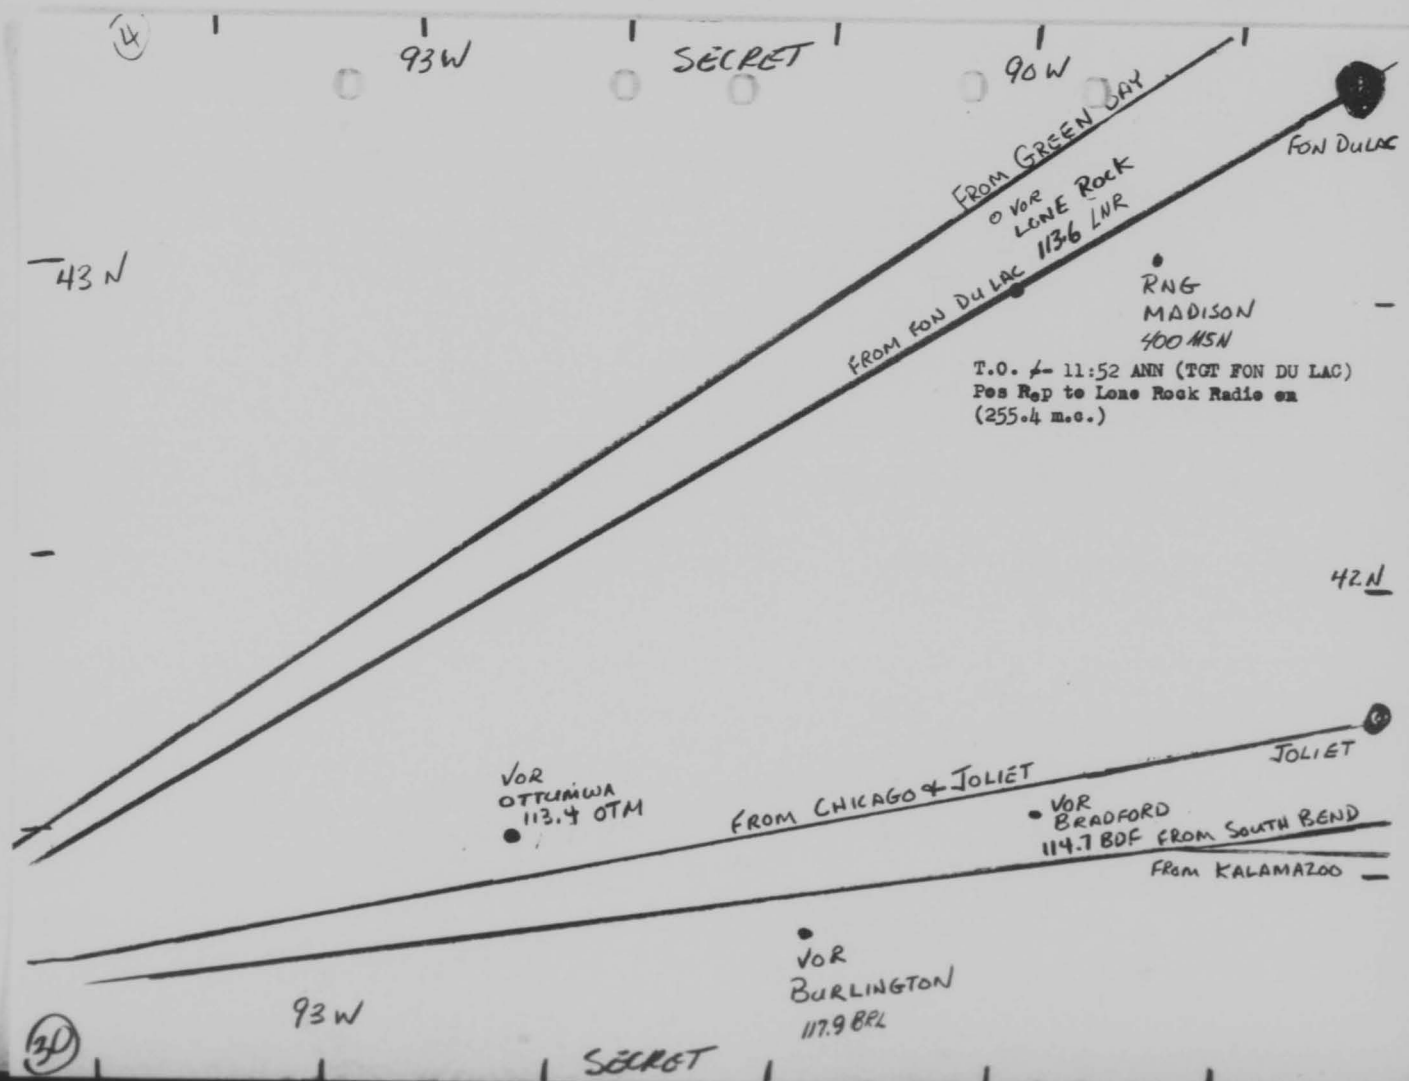 4
93W
SECRET
90W
FROM GREEN BAY
FON DULAC
VOR
LONE ROCK
113.6 LNR
43 N
FROM FON DU LAC
RNG
MADISON
400 MSN
T.O. +- 11:52 ANN (TGT FON DU LAC)
Pos Rep to Lone Rock Radio on
(255.4 m.c.)
42N
JOLIET
VOR
OTTUMWA
113.4 OTM
FROM CHICAGO & JOLIET
VOR
BRADFORD
114.7 BDF
FROM SOUTH BEND
FROM KALAMAZOO
VOR
BURLINGTON
117.9 BRL
93W
30
SECRET